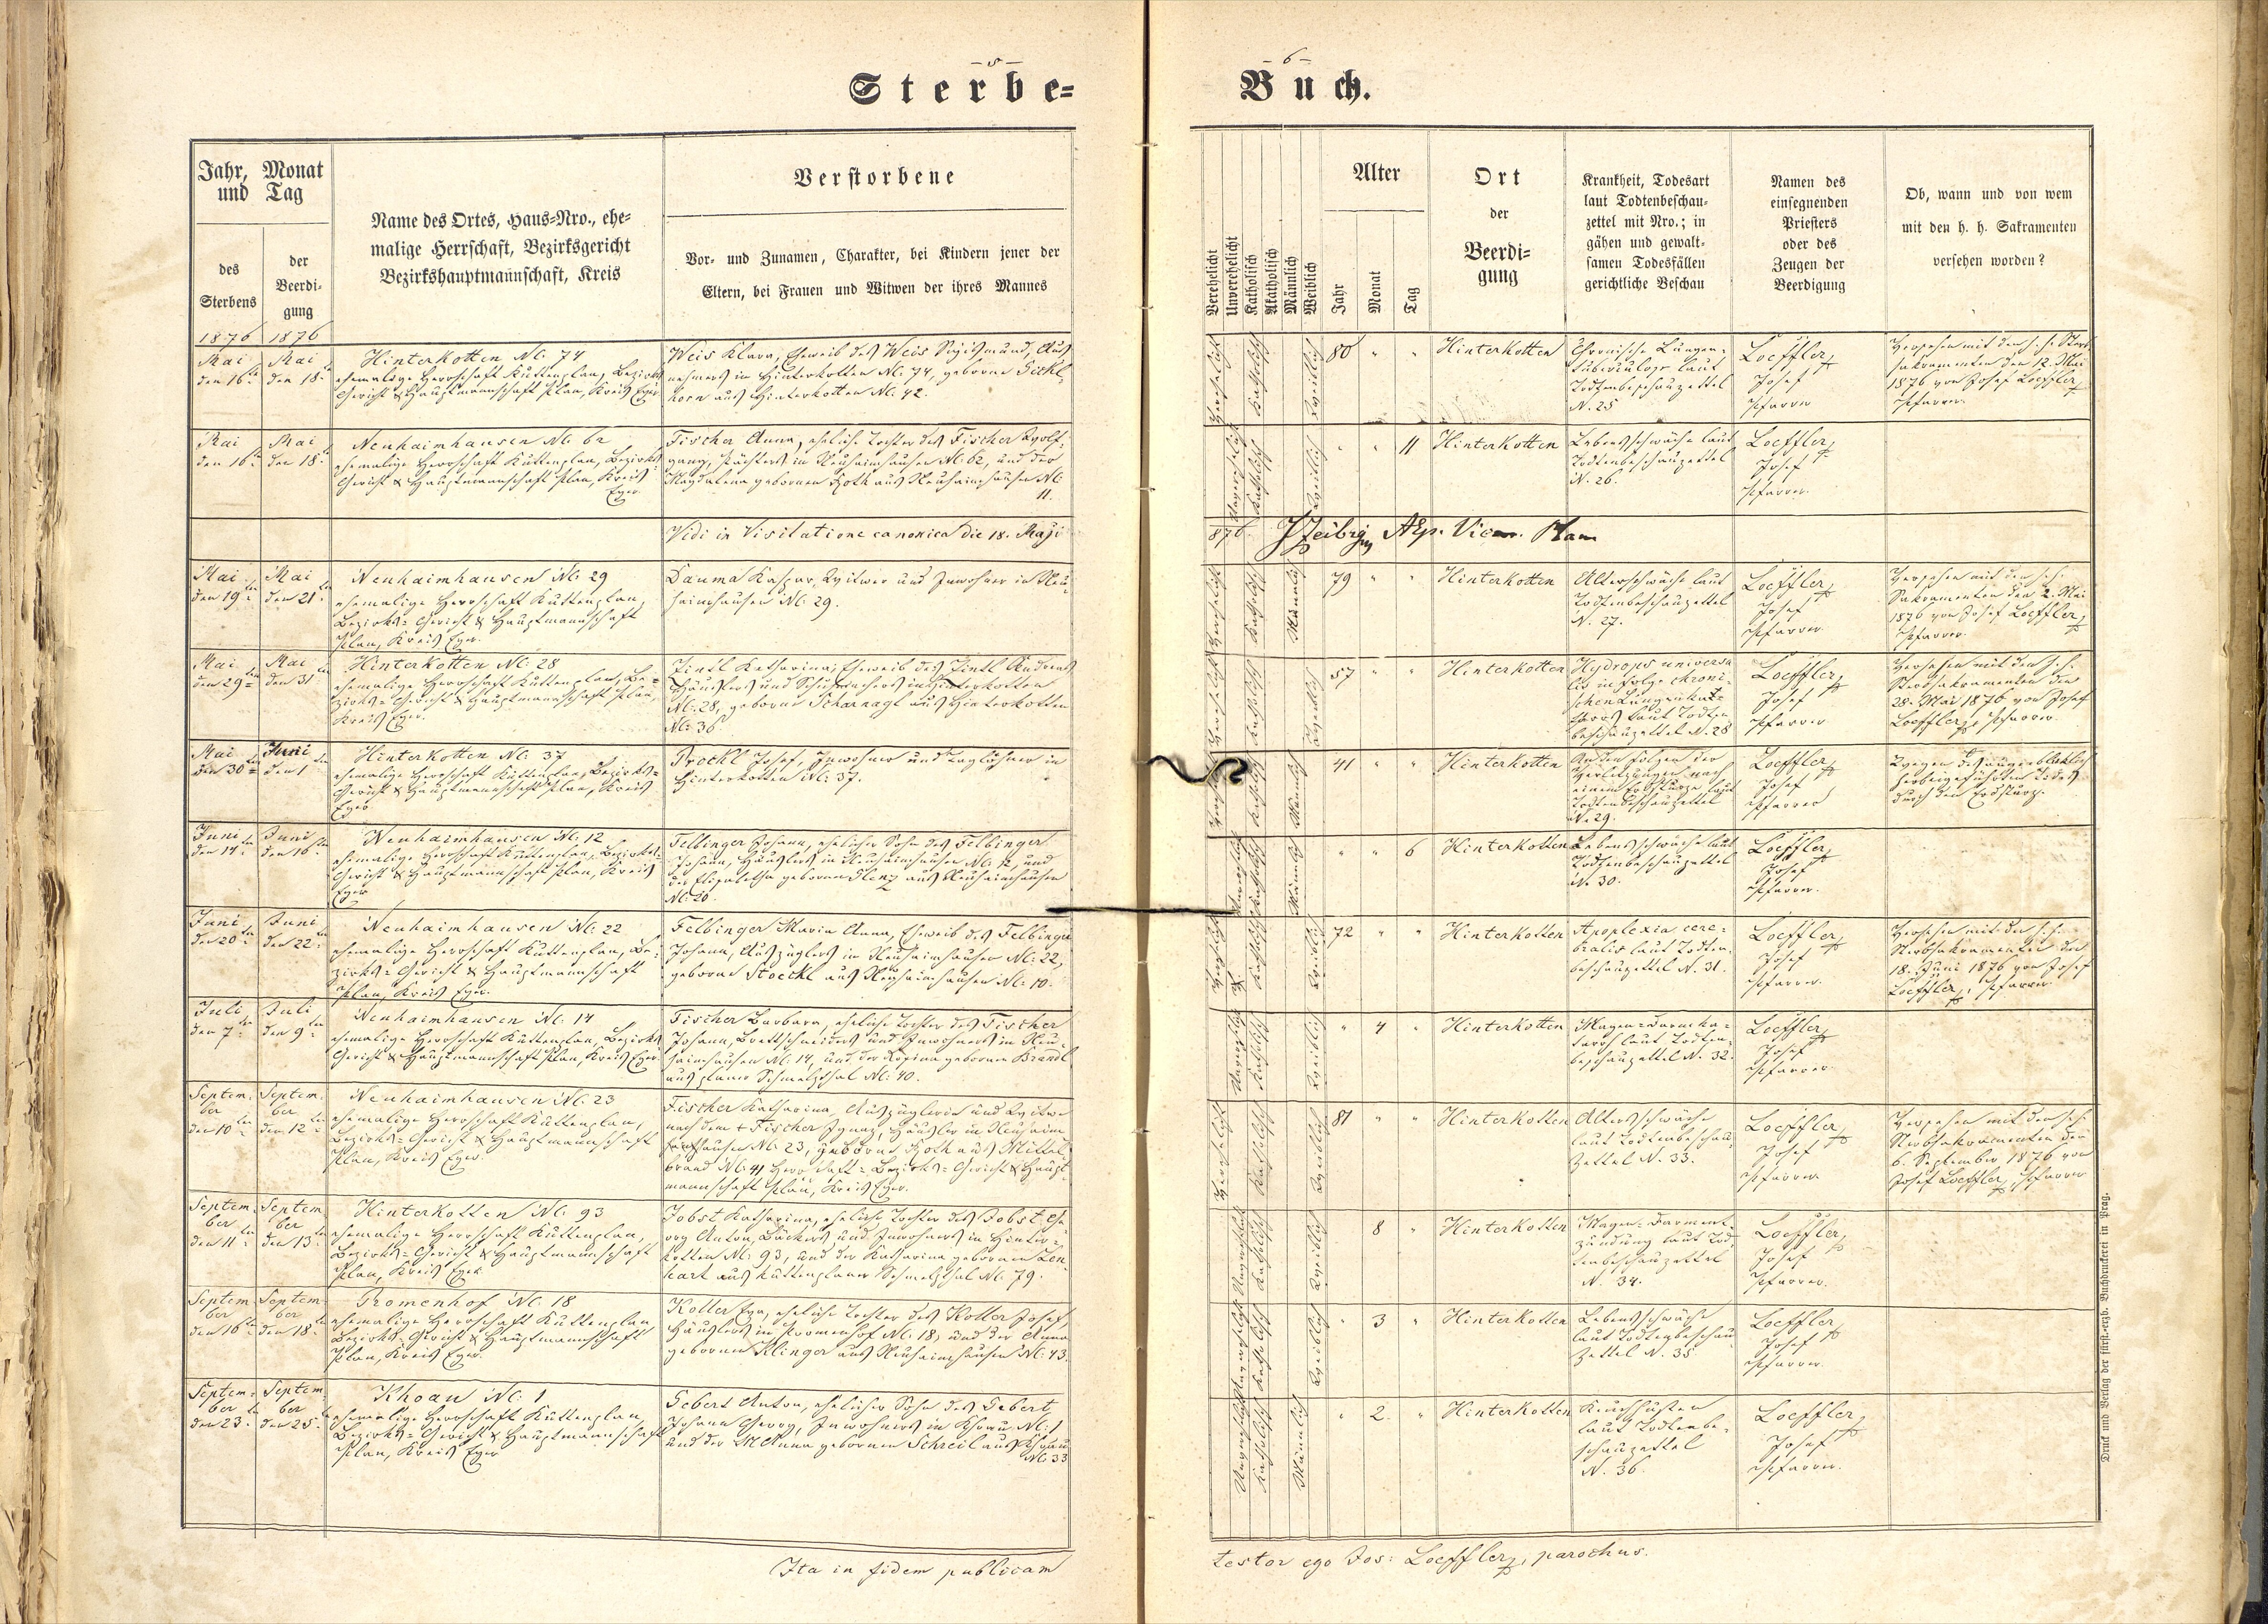 – 5 –
Sterbe-
Jahr, Monat
und Tag
des
Sterbens
der
Beerdi-
gung
Name des Ortes, Haus-Nro., ehe-
malige Herrschaft, Bezirksgericht
Bezirkshauptmannschaft, Kreis
Verstorbene
Vor- und Zunamen, Charakter, bei Kindern jener der
Eltern, bei Frauen und Witwen der ihres Mannes
1876 1876
Mai
den 16
Mai
den 18
Hinterkotten N: 74
ehemalige Herrschaft Kuttenplan, Bezirks
Gericht & Hauptmannschaft Plan, Kreis Eger
Weis Klara, Eheweib des Weis Sigismund, Aus
nehmers in Hinterkotten N: 74, geborne
horn aus Hinterkotten N: 42.
Mai
den 16
Mai
den 18
Neuhaimhausen N: 62
ehemalige Herrschaft Kuttenplan, Bezirks
Gericht & Hauptmannschaft Plan, Kreis
Eger
Fischer Anna, eheliche Tochter des Fischer Wolf-
gang, Pächters in Neuhaimhausen N: 62, und der
Magdalena gebornen Roth aus Neuhaimhausen N:
11.
Vidi in Visitatione canonica die 18. Maji
Mai
den 19
Mai
den 21
Neuhaimhausen N: 29
ehemalige Herrschaft Kuttenplan,
Bezirks-Gericht & Hauptmannschaft
Plan, Kreis Eger.
Dauma Kaspar, Witwer und Inwohner in Neu-
haimhausen N: 29.
Mai
den 29
Mai
den 31
Hinterkotten N: 28
ehemalige Herrschaft Kuttenplan, Be-
zirks-Gericht & Hauptmannschaft Plan,
Kreis Eger.
Zintl Katharina, Eheweib des Zintl Andreas
Häuslers und Schuhmachers in Hinterkotten
N: 28, geborne Scharnagl aus Hinterkotten
N: 36
Mai
den 30
Juni
den 1
Hinterkotten N: 37
ehemalige Herrschaft Kuttenplan, Bezirks-
Gericht & Hauptmannschaft Plan, Kreis
Eger
Prockl Josef, Inwohner und Taglöhner in
Hinterkotten N: 37.
Juni
den 14
Juni
den 16
Neuhaimhausen N: 12
ehemalige Herrschaft Kuttenplan, Bezirks-
Gericht & Hauptmannschaft Plan, Kreis
Eger
Felbinger Johann, ehelicher Sohn des Felbinger
Johann, Häuslers in Neuhaimhausen N: 12 und
der Elisabetha gebornen Plenz aus Neuhaimhausen
N: 20.
Juni
den 20
Juni
den 22
Neuhaimhausen N: 22
ehemalige Herrschaft Kuttenplan, Be-
zirks-Gericht & Hauptmannschaft
Plan, Kreis Eger.
Felbinger Maria Anna, Eheweib des Felbinger
Johann, Auszüglers in Neuhaimhausen N: 22,
geborne Stoeckl aus Neuhaimhausen N: 10.
Juli
den 7
Juli
den 9
Neuhaimhausen N: 14
ehemalige Herrschaft Kuttenplan, Bezirks
Gericht & Hauptmannschaft Plan, Kreis Eger.
Fischer Barbara, eheliche Tochter des Fischer
Johann, Brettschneiders und Inwohners in Neu-
haimhausen N: 14, und der Regina gebornen Brandl
aus planer Schmelzthal N: 40.
Septem-
ber
den 10
Septem
ber
den 12
Neuhaimhausen N: 23
ehemalige Herrschaft Kuttenplan,
Bezirks-Gericht & Hauptmannschaft
Plan, Kreis Eger.
Fischer Katharina, Auszüglerin und Witwe
nach dem † Fischer Ignaz, Häusler in Neuhaim
hausen N: 23, geborne Roth aus Mittel-
brand N: 41 Herrschaft- Bezirks-Gericht & Haupt-
mannschaft Plan, Kreis Eger.
Septem-
ber
den 11
Septem
ber
den 13
Hinterkotten N: 93
ehemalige Herrschaft Kuttenplan,
Bezirks-Gericht & Hauptmannschaft
Plan, Kreis Eger
Jobst Katharina, eheliche Tochter des Jobst Ge-
org Anton, Bäckers und Inwohners in Hinter-
kotten N: 93, und der Katharina gebornen Len-
hart aus kuttenplaner Schmelzthal N: 79.
Septem
ber
den 16
Septem
ber
den 18
Promenhof N: 18
ehemalige Herrschaft Kuttenplan
Bezirks-Gericht & Hauptmannschaft
Plan, Kreis Eger.
Koller Eva, eheliche Tochter des Koller Josef,
Häuslers in Promenhof N: 18, und der Anna
gebornen Klinger aus Neuhaimhausen N: 43.
Septem-
ber
den 23
Septem
ber
den 25
Khoau N: 1
ehemalige Herrschaft Kuttenplan,
Bezirks-Gericht & Hauptmannschaft
Plan, Kreis Eger
Gebert Anton, ehelicher Sohn des Gebert
Johann Georg, Inwohners in Khoau N: 1
und der M Anna gebornen Schreil aus Khoau
N: 33
Ita in fidem publicam
– 6 –
Buch.
Verehelicht
Unverehelicht
Katholisch
Akatholisch
Männlich
Weiblich
Alter
Jahr
Monat
Tag
Ort
der
Beerdi-
gung
Krankheit, Todesart
laut Todtenbeschau-
zettel mit Nro.; in
gähen und gewalt-
samen Todesfällen
gerichtliche Beschau
Namen des
einsegnenden
Priesters
oder des
Zeugen der
Beerdigung
Ob, wann und von wem
mit den h. h. Sakramenten
versehen worden?
Verehelicht
Katholisch
Weiblich
80 " "
Hinterkotten
Chronische Lungen-
tuberculose laut
Todtenbeschauzettel
N. 25
Loeffler,
Josef
Pfarrer
Versehen mit den h. h. Sterb
sakramenten den 12. Mai
1876 von Josef Loeffler,
Pfarrer.
Unverehelicht
Katholisch
Weiblich
" " 11
Hinterkotten
Lebensschwäche laut
Todtenbeschauzettel
N. 26.
Loeffler,
Josef
Pfarrer.
876.
Verehelicht
Katholisch
Männlich
79 " "
Hinterkotten
Altersschwäche laut
Todtenbeschauzettel
N. 27.
Loeffler,
Josef
Pfarrer
Versehen mit den h. h.
Sakramenten den 2. Mai
1876 von Josef Loeffler,
Pfarrer.
Verehelicht
Katholisch
Weiblich
57 " "
Hinterkotten
Hydrops universa
lis in folge chroni-
schen Lungenkat-
tarrs laut Todten
beschauzettel N. 28
Loeffler,
Josef
Pfarrer
Versehen mit den h. h.
Sterbsakramenten den
28. Mai 1876 von Josef
Loeffler, Pfarrer.
Verehelicht
Katholisch
Männlich
41 " "
Hinterkotten
An den Folgen der
Verletzungen nach
einem Erdsturze laut
Todtenbeschauzettel
N. 29.
Loeffler,
Josef
Pfarrer
Wegen des augenblicklich
herbeigeführten Todes
durch den Erdsturz.
Unverehelicht
Katholisch
Männlich
" " 6
Hinterkotten
Lebensschwäche laut
Todtenbeschauzettel
N. 30.
Loeffler,
Josef
Pfarrer.
Verehelicht
Katholisch
Weiblich
72 " "
Hinterkotten
Apoplexia cere-
bralis laut Todten-
beschauzettel N. 31.
Loeffler,
Josef
Pfarrer.
Versehen mit den h. h.
Sterbsakramenten den
18. Juni 1876 von Josef
Loeffler, Pfarrer
Unverehelicht
Katholisch
Weiblich
" 4 "
Hinterkotten
Magen-Darmka-
tarrh laut Todten-
beschauzettel N. 32.
Loeffler,
Josef
Pfarrer
Verehelicht
Katholisch
Weiblich
81 " "
Hinterkotten
Altersschwäche
laut Todtenbeschau-
zettel N. 33.
Loeffler,
Josef
Pfarrer
Versehen mit den h. h.
Sterbsakramenten den
6. September 1876 von
Josef Loeffler, Pfarrer
Unverehelicht
Katholisch
Weiblich
8 "
Hinterkotten
Magen-Darment-
zündung laut Tod-
tenbeschauzettel
N. 34.
Loeffler,
Josef
Pfarrer.
Unverehelicht
Katholisch
Weiblich
" 3 "
Hinterkotten
Lebensschwäche
laut Todtenbeschau
zettel N. 35
Loeffler
Josef
Pfarrer.
Unverehelicht
Katholisch
Männlich
" 2. "
Hinterkotten
Keuchhusten
laut Todtenbe-
schauzettel
N. 36.
Loeffler,
Josef
Pfarrer.
testor ego Jos: Loeffler, parochus.
Druck und Verlag der fürst.-erzb. Buchdruckerei in Prag.